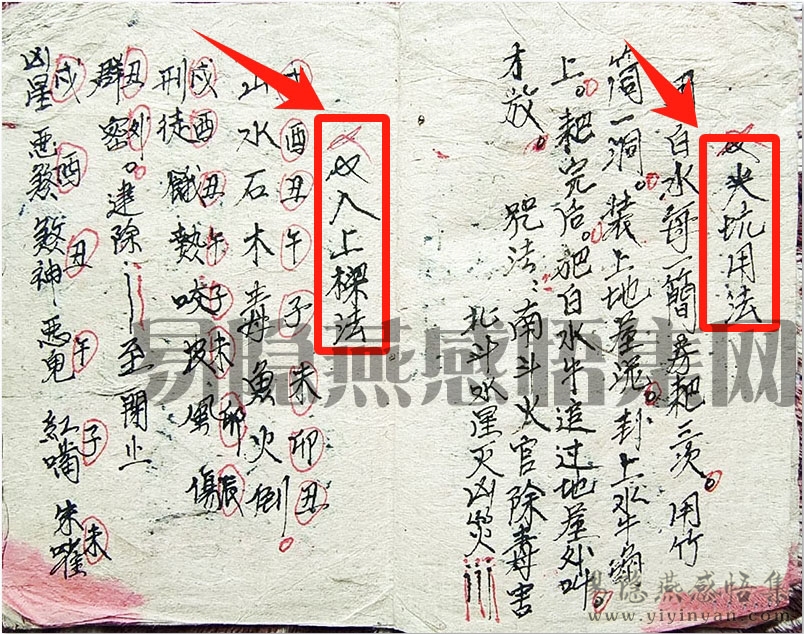 火坑用法
用白水每一簡勞耙三次。用竹
筒一洞。裝上地基泥。封上水牛角
上。耙完后。把白水牛追过地基外叫
才放。
咒法：南斗火官除毒害
北斗水星灭凶災
入上樑法
戌酉丑午子未卯丑
山水石木毒魚火倒。
戌酉丑午子未卯辰
刑徒戲贄咬皮風傷
丑外
群密。建除 至開止
戌酉丑午子未
凶星 恶煞 煞神 恶鬼 紅嘴 朱雀
易隐燕感悟集网
易隐燕感悟集
www.yiyinyan.com